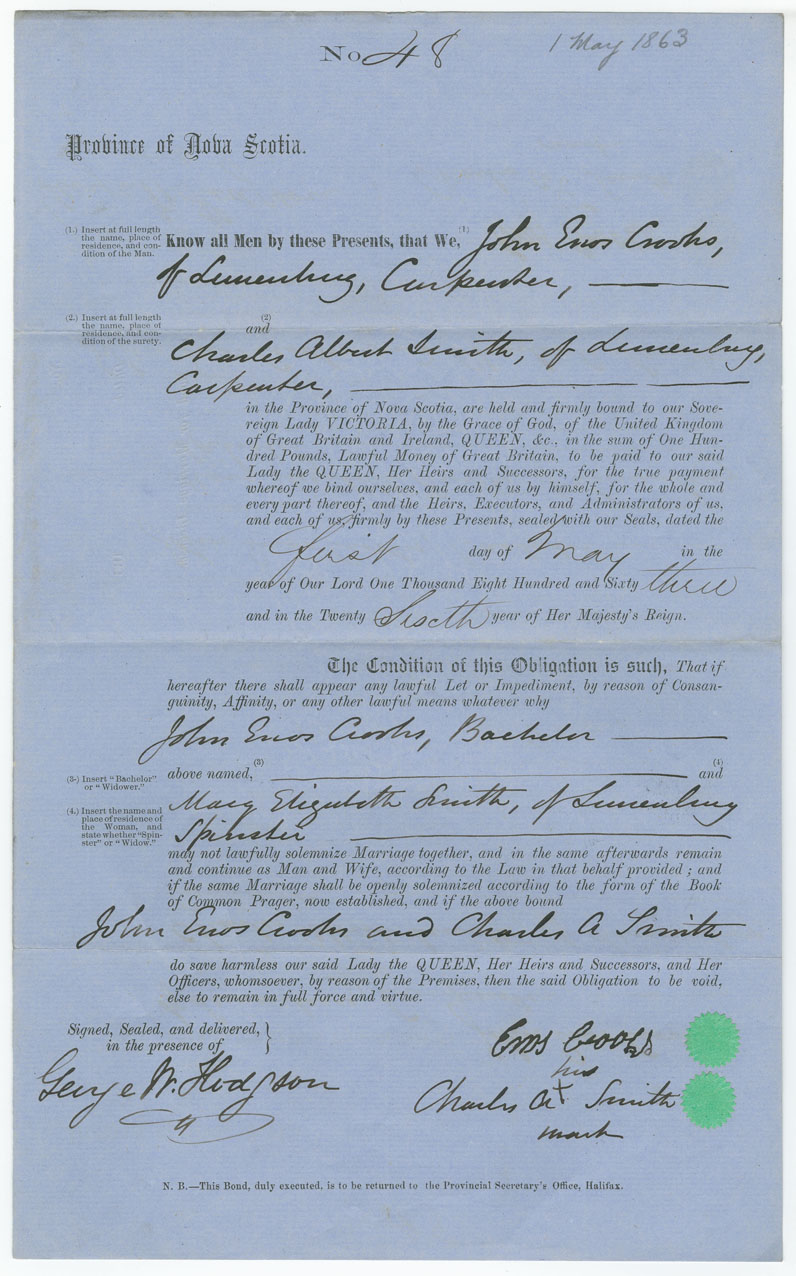 No 48
1 May 1863
Province of Nova Scotia.
(1.) Insert at full length
the name, place of
residence, and con-
dition of the Man.
Know all Men by these Presents, that We, (1) John Enos Crooks,
of Lunenburg, Carpenter,
(2.) Insert at full length
the name, place of
residence, and con-
dition of the surety.
(2)
and
Charles Albert Smith, of Lunenburg,
Carpenter,
in the Province of Nova Scotia, are held and firmly bound to our Sove-
reign Lady VICTORIA, by the Grace of God, of the United Kingdom
of Great Britain and Ireland, QUEEN, &c., in the sum of One Hun-
dred Pounds, Lawful Money of Great Britain, to be paid to our said
Lady the QUEEN, Her Heirs and Successors, for the true payment
whereof we bind ourselves, and each of us by himself, for the whole and
every part thereof, and the Heirs, Executors, and Administrators of us,
and each of us, firmly by these Presents, sealed with our Seals, dated the
first day of May in the
year of Our Lord One Thousand Eight Hundred and Sixty three
and in the Twenty Sixth year of Her Majesty's Reign.
The Condition of this Obligation is such, That if
hereafter there shall appear any lawful Let or Impediment, by reason of Consan-
guinity, Affinity, or any other lawful means whatever why
John Enos Crooks, Bachelor
(3.) Insert "Bachelor"
or "Widower."
above named, (3) (4) and
(4.) Insert the name and
place of residence of
the Woman, and
state whether "Spin-
ster" or "Widow."
Mary Elizabeth Smith, of Lunenburg
Spinster
may not lawfully solemnize Marriage together, and in the same afterwards remain
and continue as Man and Wife, according to the Law in that behalf provided; and
if the same Marriage shall be openly solemnized according to the form of the Book
of Common Prager, now established, and if the above bound
John Enos Crooks and Charles A Smith
do save harmless our said Lady the QUEEN, Her Heirs and Successors, and Her
Officers, whomsoever, by reason of the Premises, then the said Obligation to be void,
else to remain in full force and virtue.
Signed, Sealed, and delivered,
in the presence of
George W. Hodgson
Enos Crooks
his
Charles A X Smith
mark
N. B.—This Bond, duly executed, is to be returned to the Provincial Secretary's Office, Halifax.